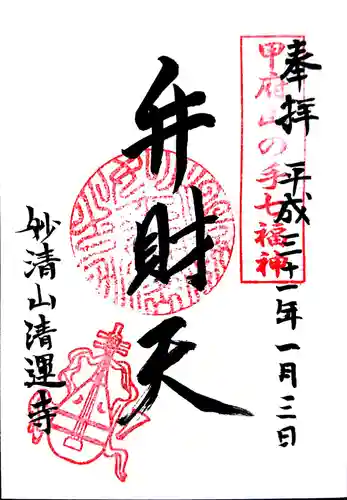 奉拝 平成三十一年一月三日
甲府山の手七福神
弁財天
妙清山清運寺